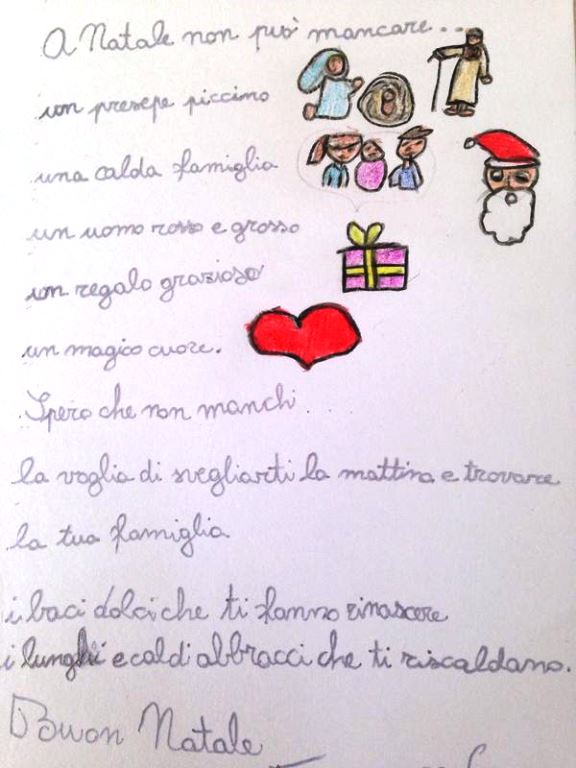 A Natale non può mancare...
un presepe piccino
una calda famiglia
un uomo rosso e grosso
un regalo grazioso
un magico cuore.
Spero che non manchi...
la voglia di svegliarti la mattina e trovare
la tua famiglia
i baci dolci che ti fanno rinascere
i lunghi e caldi abbracci che ti riscaldano.
Buon Natale